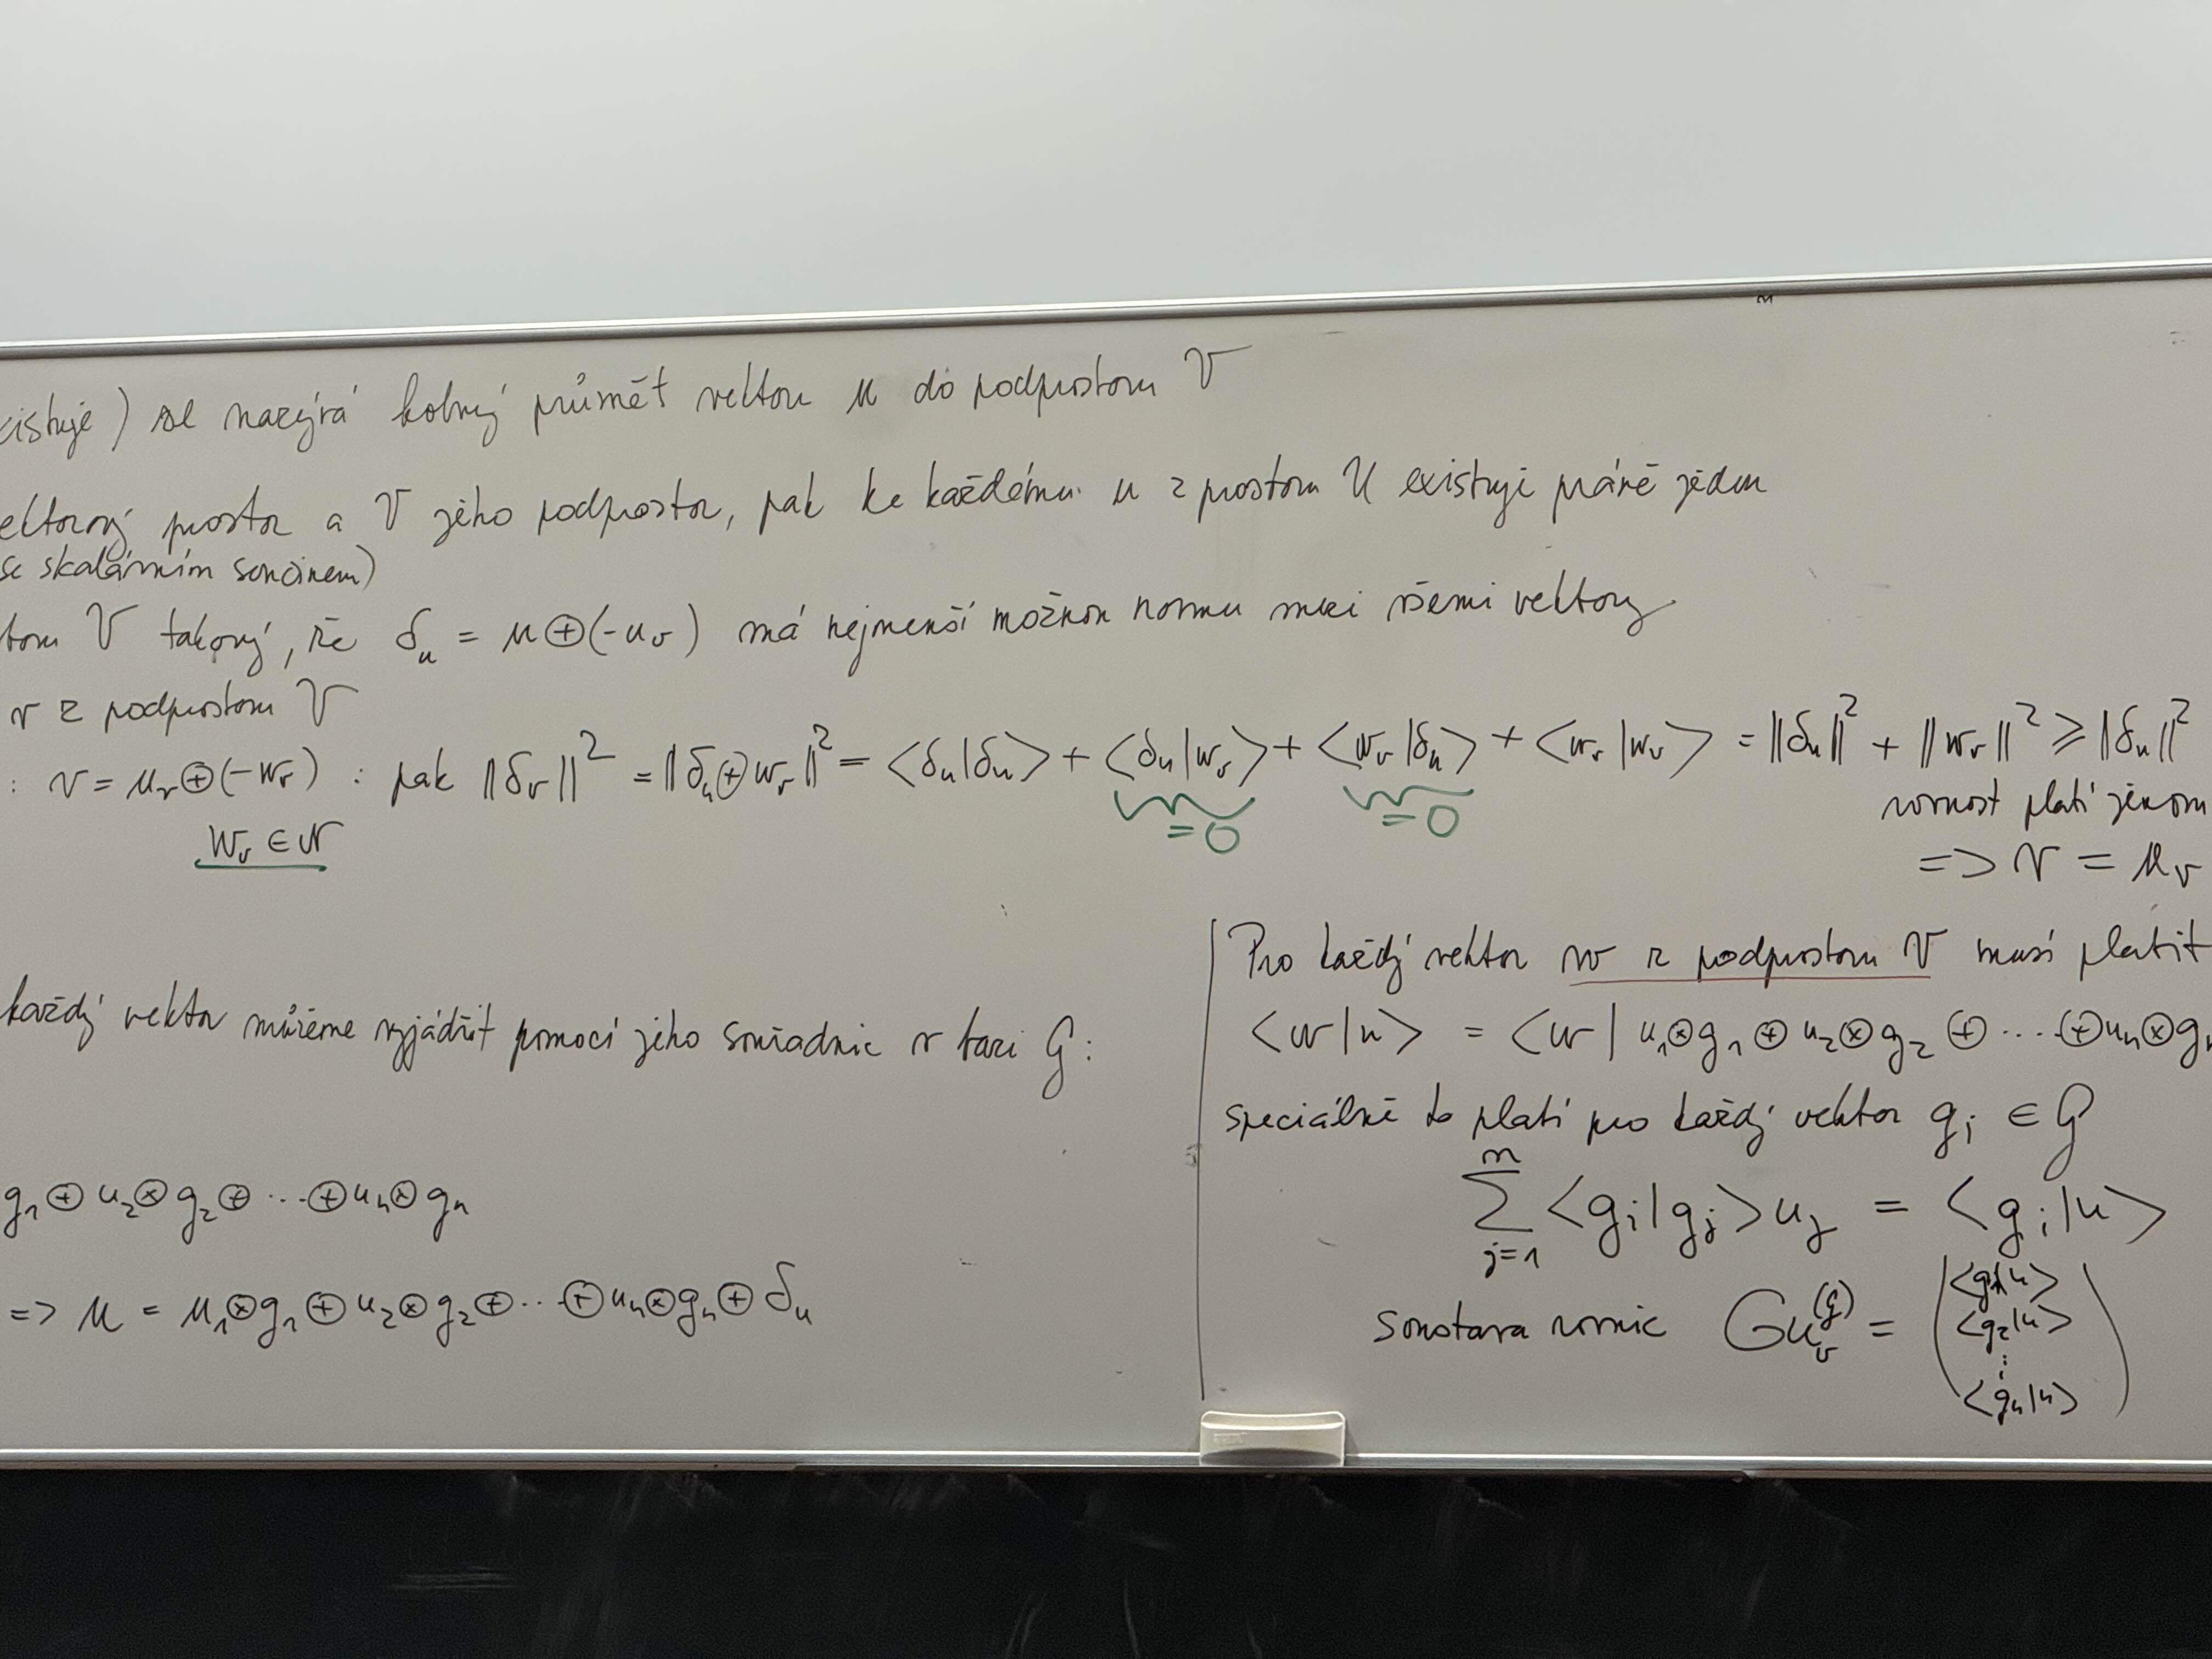 xistuje) se nazývá kolmý průmět vektoru u do podprostoru V
ektorový prostor a V jeho podprostor, pak ke každému u z prostoru U existuje právě jeden
se skalárním součinem)
toru V takový, že δ_u = u ⊕ (-u_v) má nejmenší možnou normu mezi všemi vektory
v z podprostoru V
: v = u_v ⊕ (-w_v) : pak ‖δ_v‖² = ‖δ_u ⊕ w_v‖² = <δ_u|δ_u> + <δ_u|w_v> + <w_v|δ_u> + <w_v|w_v> = ‖δ_u‖² + ‖w_v‖² ≥ ‖δ_u‖²
=0 =0
rovnost platí jenom
w_v ∈ V
=> v = u_v
každý vektor můžeme vyjádřit pomocí jeho souřadnic v bazi G:
g_1 ⊕ u_2 ⊗ g_2 ⊕ ... ⊕ u_n ⊗ g_n
=> u = u_1 ⊗ g_1 ⊕ u_2 ⊗ g_2 ⊕ ... ⊕ u_n ⊗ g_n ⊕ δ_u
Pro každý vektor w z podprostoru V musí platit
<w|u> = <w| u_1 ⊗ g_1 ⊕ u_2 ⊗ g_2 ⊕ ... ⊕ u_n ⊗ g_n
speciálně to platí pro každý vektor g_i ∈ G
n
∑ <g_i|g_j> u_j = <g_i|u>
j=1
soustava rovnic G u_v^(G) = ( <g_1|u>
<g_2|u>
⋮
<g_n|u> )